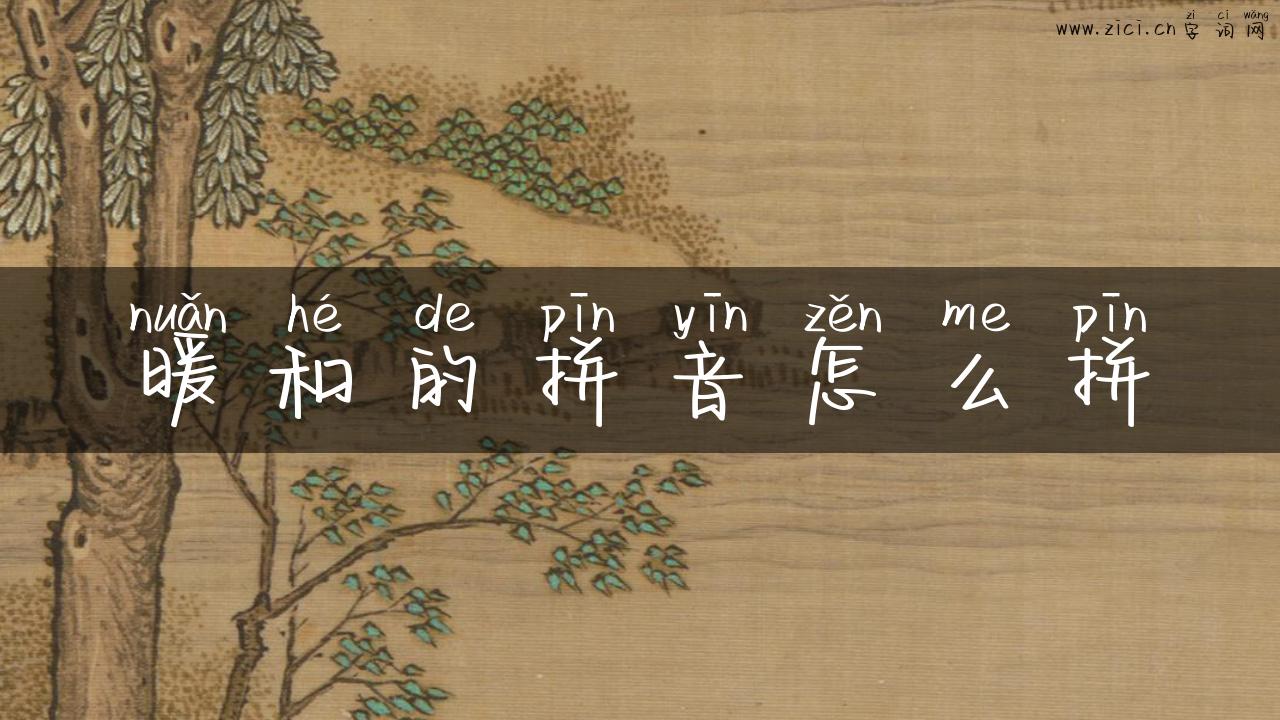 zì cí wǎng
www.zici.cn 字词网
nuǎn hé de pīn yīn zěn me pīn
暖和的拼音怎么拼